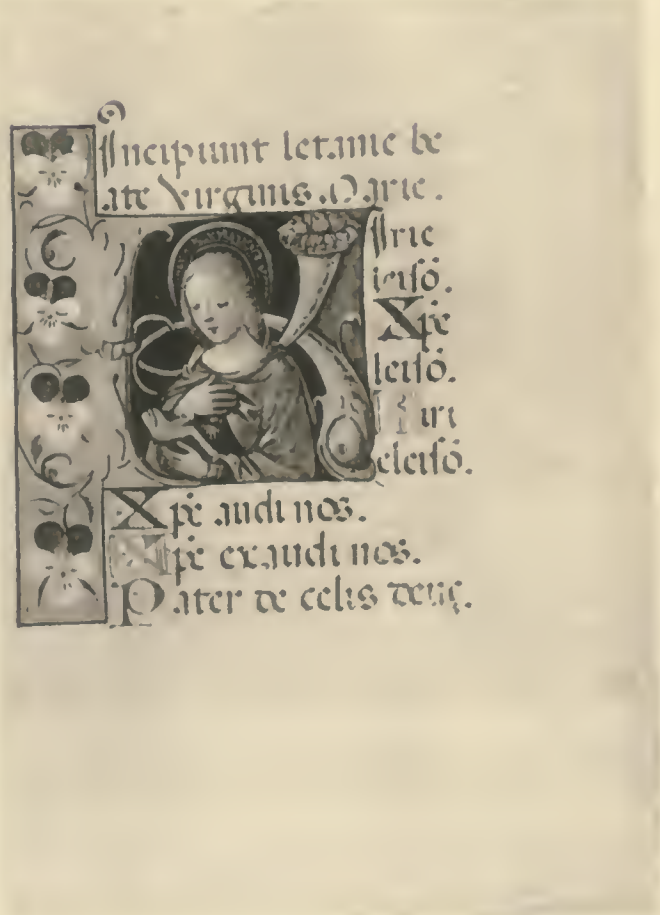 Incipiunt letanie be
ate Virginis Marie.
irie
leisō.
Xp̄e
leisō.
Kiri
eleisō.
Xp̄e audi nos.
Xp̄e exaudi nos.
Pater de celis deus.